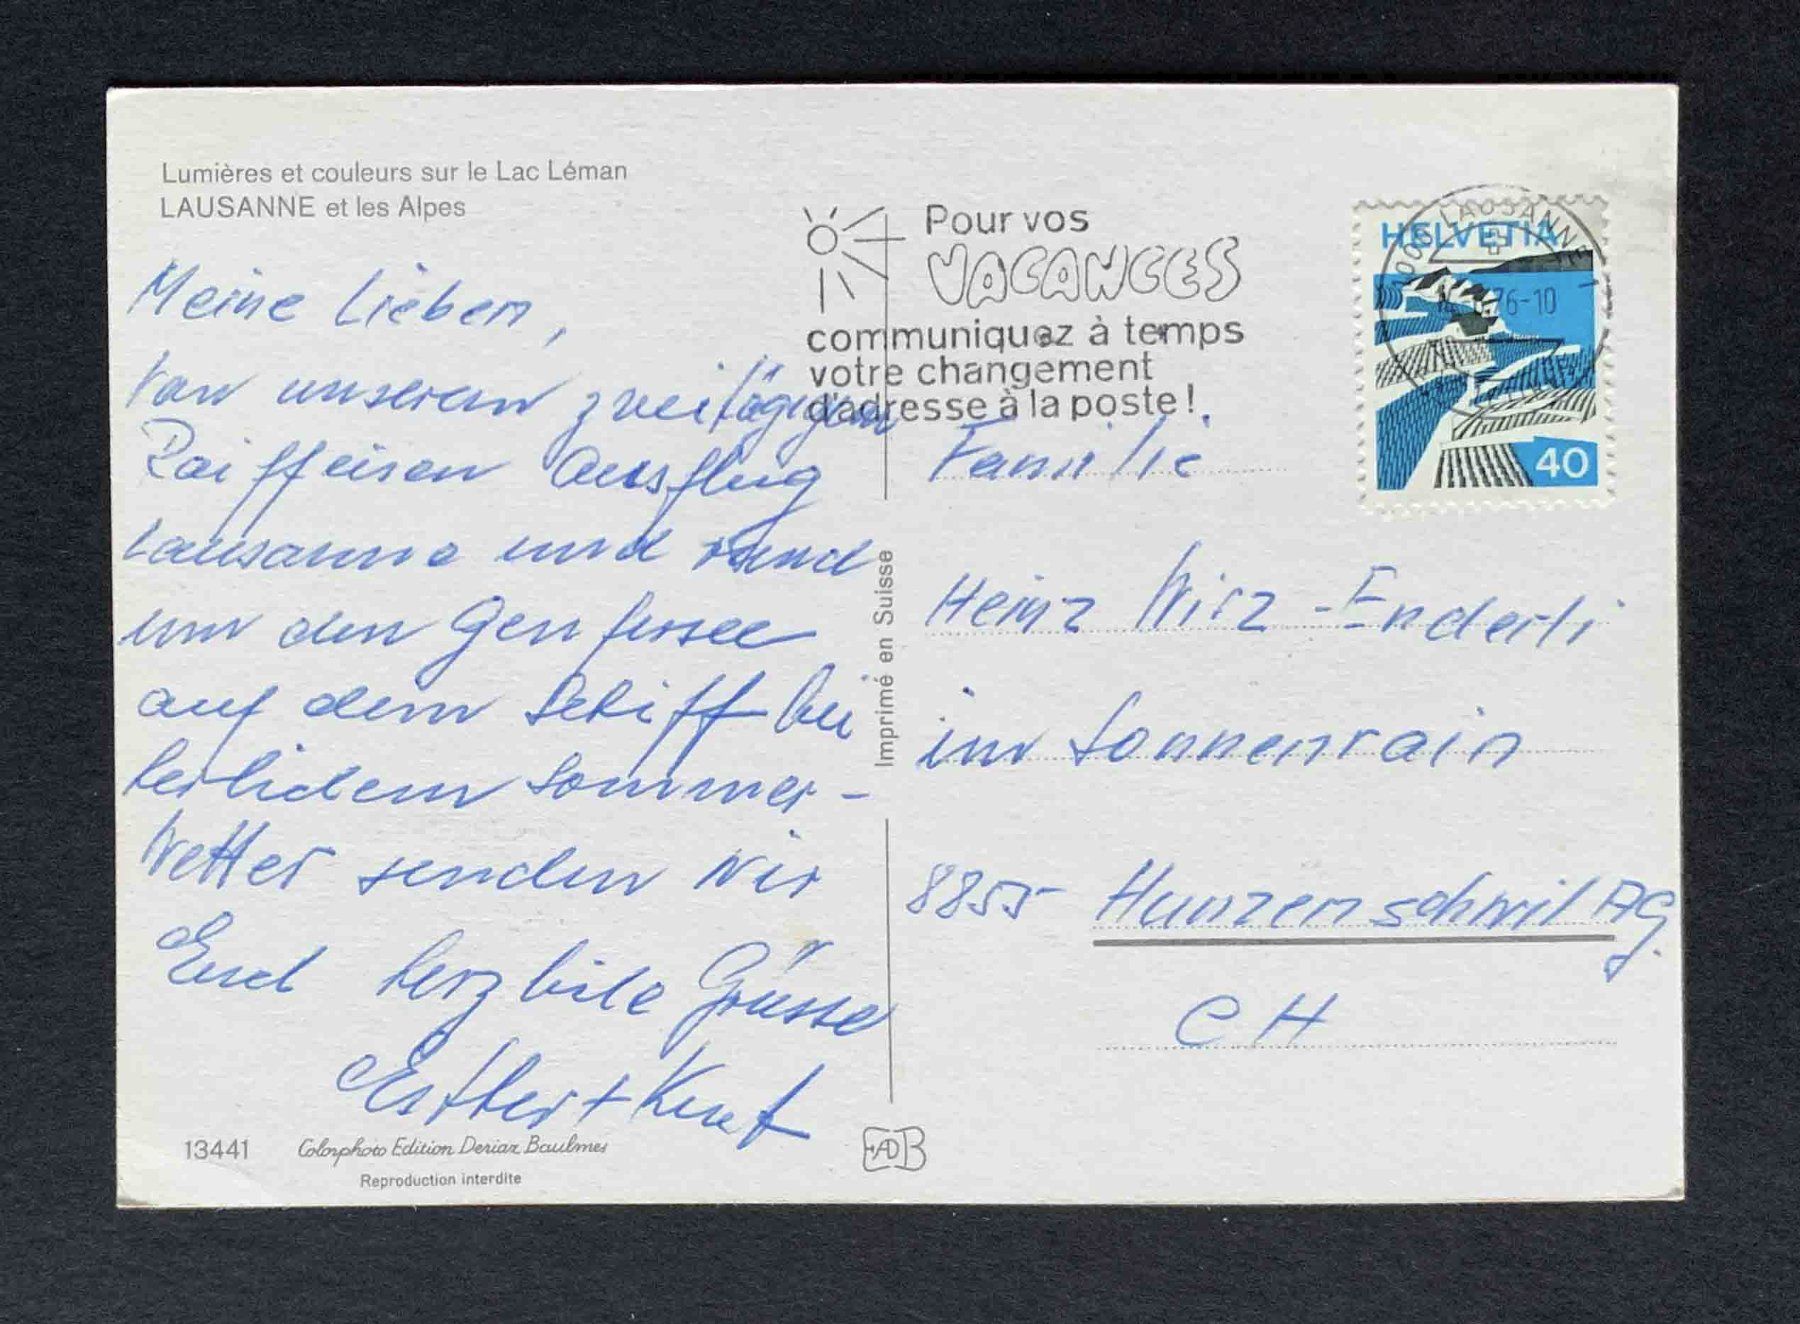 Lumières et couleurs sur le Lac Léman
LAUSANNE et les Alpes
Meine Lieben,
Von unserem zweitägigen
Raiffeisen Ausflug
Lausanne und rund
um den Genfersee
auf dem Schiff bei
herlichem Sommer-
Wetter senden wir
Euch herzliche Grüsse
Esther + Kurt
13441 Colorphoto Edition Deriaz Baulmes
Reproduction interdite
Imprimé en Suisse
EDB
Pour vos
VACANCES
communiquez à temps
votre changement
d'adresse à la poste!
LAUSANNE
76-10
HELVETIA
40
Familie
Heinz Wirz-Enderli
im Sonnenrain
8855 Hunzenschwil AG.
CH